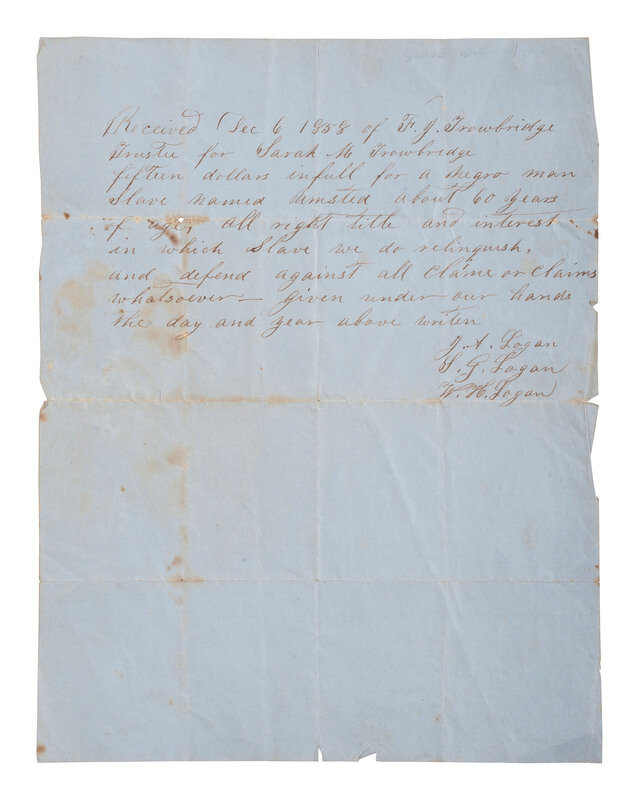 Received Dec 6 1858 of F. J. Trowbridge
Trustee for Sarah M Trowbridge
fifteen dollars infull for a negro man
Slave named Umsted about 60 years
of age, all right title and interest
in which Slave we do relinquish,
and defend against all claime or claims
whatsoever — given under our hands
the day and year above writen
J. A. Logan
S. G. Logan
W. H. Logan